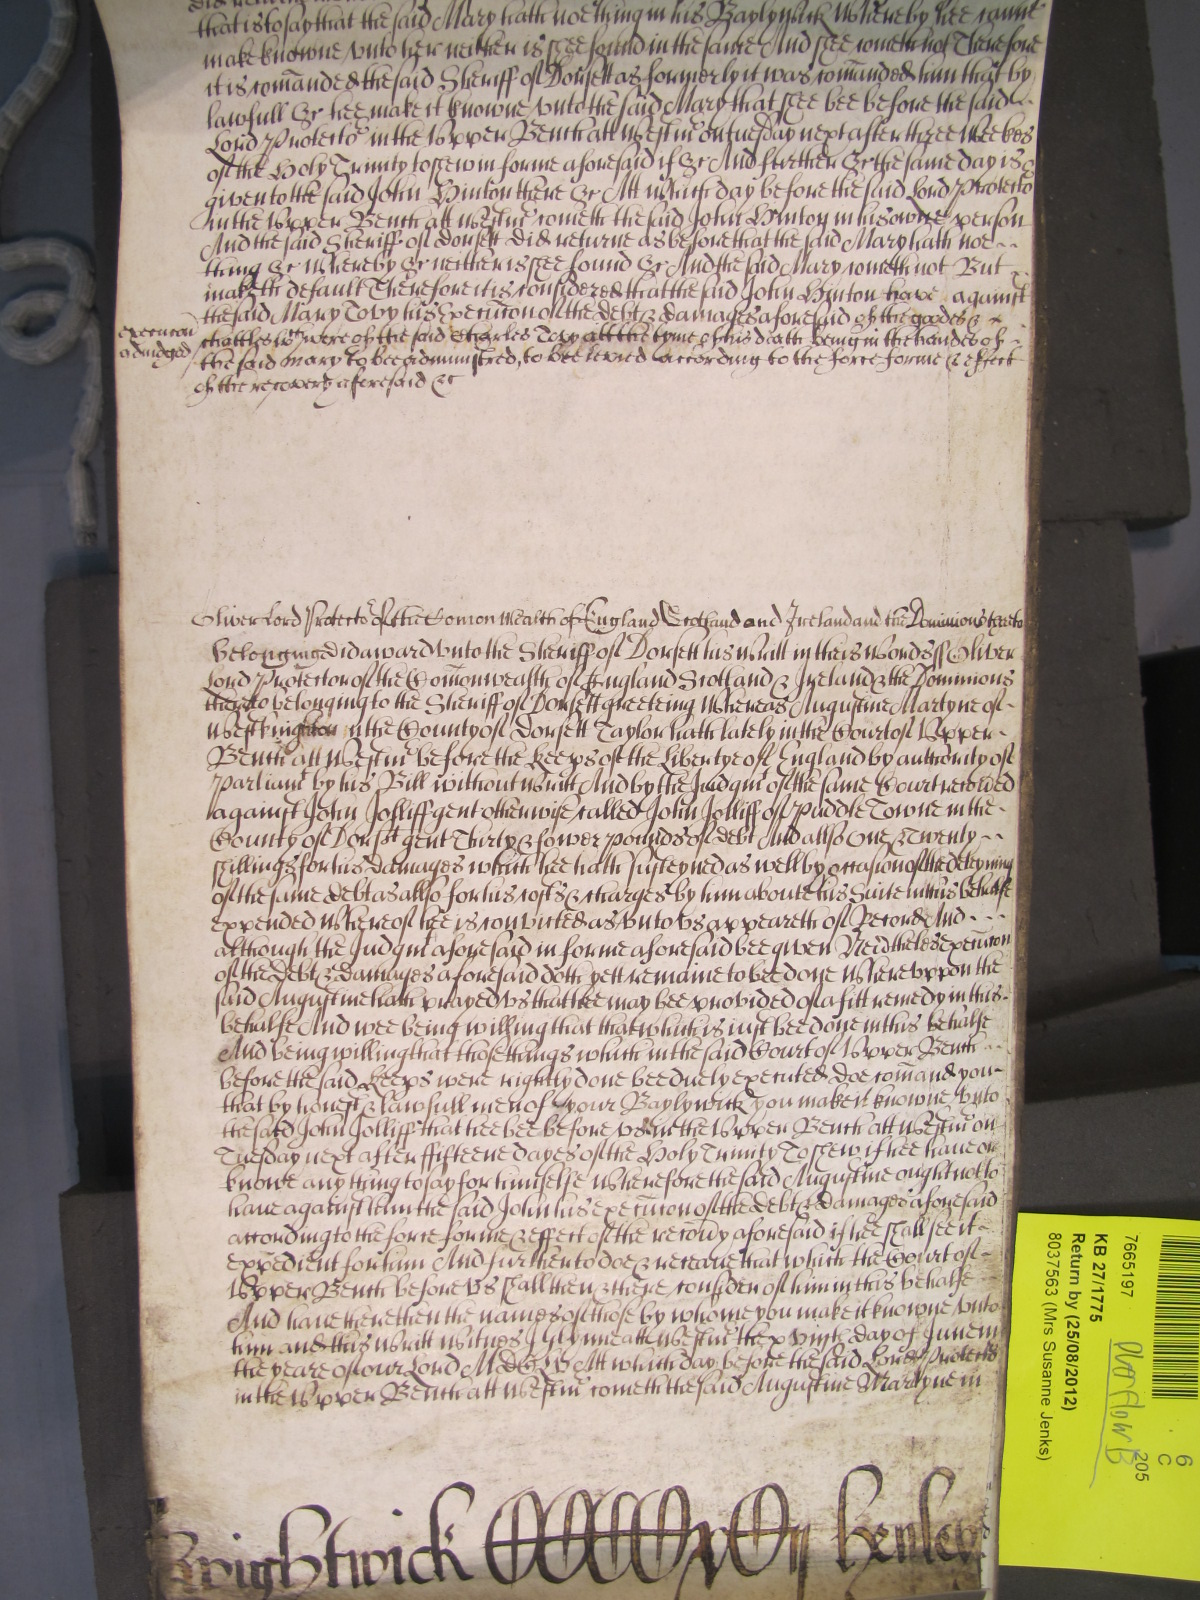 that is to say that the said Mary hath noething in his Baylywick whereby hee canne
make knowne unto her neither is shee found in the same And shee cometh not Therefore
it is com̄anded the said Sheriff of Dorsett as formerly it was com̄anded him that by
lawfull &c hee make it knowne unto the said Mary that shee bee before the said
Lord Protector in the Upper Bench att Westm̄ on tuesday next after three weekes
of the Holy Trinity to shew in forme aforesaid if &c And further &c the same day is
given to the said John Hinton there &c Att which day before the said Lord Protector
in the Upper Bench att Westm̄ cometh the said John Hinton in his owne person
And the said Sheriff of Dorsett did returne as before that the said Mary hath noe
thing &c whereby &c neither is shee found &c And the said Mary cometh not But
maketh default Therefore it is considered that the said John Hinton have against
the said Mary Tovy his execution of the debt & damages aforesaid of the goodes &
execution
adiudged
chattles wch were of the said Charles Tovy att the tyme of his death being in the handes of
the said Mary to bee administred, to bee levied according to the force forme & effect
of the recovery aforesaid &c
Oliver Lord Protector of the Comon Wealth of England Scotland and Ireland and the Dominions thereto
belonging did award unto the Sheriff of Dorsett his writt in theis words ss Oliver
Lord Protector of the Com̄onwealth of England Scotland & Ireland & the Dominions
thereto belonging to the Sheriff of Dorsett greeting Whereas Augustine Martyne of
West Knighton in the County of Dorsett Taylor hath lately in the Court of Upper
Bench att Westm̄ before the Keeps of the Libertye of England by authority of
Parliamt by his Bill without writt And by the Judgmt of the same Court recovered
against John Jolliff gent otherwise called John Jolliff of Puddle Towne in the
County of Dorsett gent Thirty & fower pounds of debt And allso One & Twenty
shillings for his damages which hee hath susteyned as well by occasion of the deteyning
of the same debt as allso for his costs & charges by him about his Suite in this behalfe
expended whereof hee is convicted as unto us appeareth of Record And
although the Judgmt aforesaid in forme aforesaid bee given Neverthelesse execution
of the debt & damages aforesaid doth yett remaine to bee done whereuppon the
said Augustine hath prayed us that hee may bee provided of a fitt remedy in this
behalfe And wee being willing that that which is just bee done in this behalfe
And being willing that those things which in the said Court of Upper Bench
before the said Keeps were rightly done bee duely executed doe com̄and you
that by honest & lawfull men of your Baylywick you make it knowne unto
the said John Jolliff that hee bee before us in the Upper Bench att Westm̄ on
Tuesday next after fifteene dayes of the Holy Trinity To shew if hee have or
knowe any thing to say for himselfe wherefore the said Augustine ought not to
have against him the said John his execution of the debt & damages aforesaid
according to the force forme & effect of the recovy aforesaid if hee shall see it
expedient for him And further to doe & receave that which the Court of
Upper Bench before us shall then & there consider of him in this behalfe
And have there then the names of those by whome you make it knowne unto
him and this writt witnes J Glynne att Westm̄ the day of June in
the yeare of our Lord Att which day before the said Lord Protector
in the Upper Bench att Westm̄ cometh the said Augustine Martyne in
Brightwick Henley
7665197
KB 27/1775
Return by (25/08/2012)
8037563 (Mrs Susanne Jenks)
6
C
205